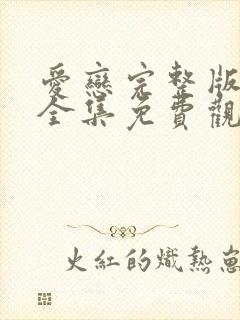 愛戀完整版
全集免費觀
火紅的熾熱